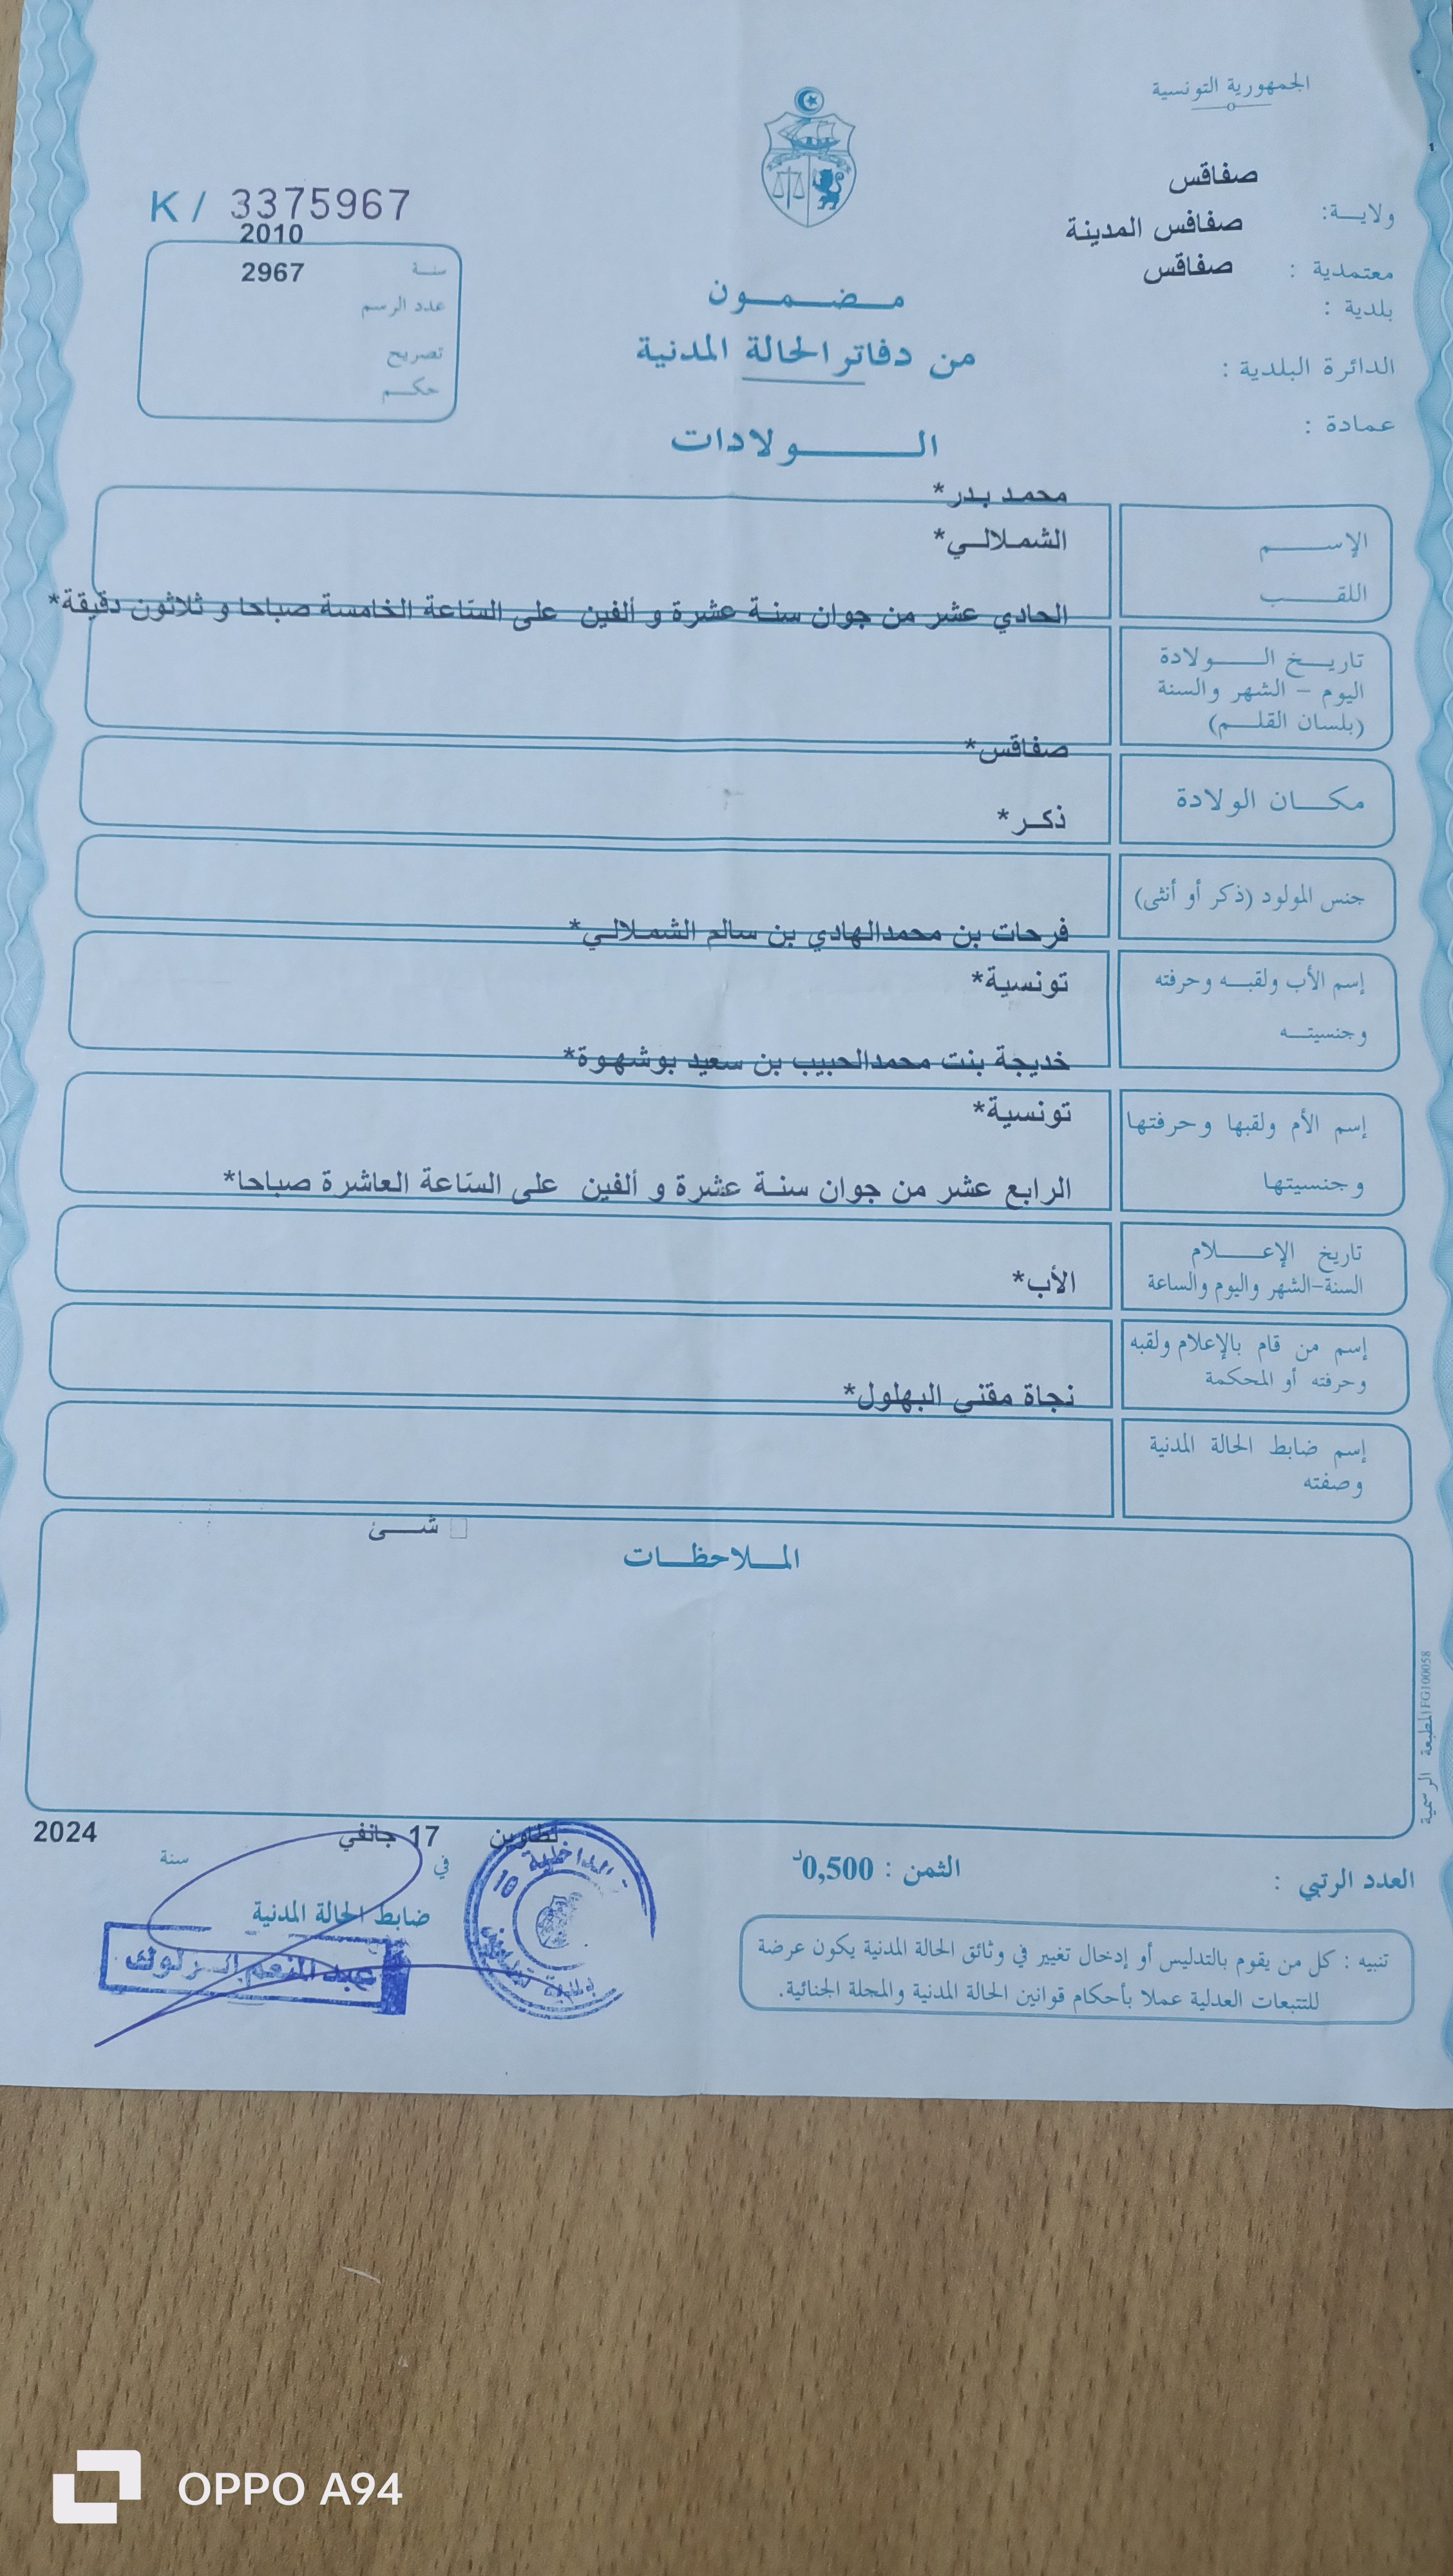 الجمهورية التونسية
صفاقس
ولايـــة:
صفاقس المدينة
معتمدية :
صفاقس
بلدية :
الدائرة البلدية :
عمادة :
K / 3375967
2010
سنة
2967
عدد الرسم
تصريح
حكـــم
مــضــمــون
من دفاتر الحالة المدنية
الـــــولادات
محمد بدر*
الإســــم
الشملالي*
اللقــــب
الحادي عشر من جوان سنة عشرة و ألفين على الساعة الخامسة صباحا و ثلاثون دقيقة*
تاريــخ الــــولادة
اليوم - الشهر والسنة
(بلسان القلـــم)
صفاقس*
مكـــان الولادة
ذكر*
جنس المولود (ذكر أو أنثى)
فرحات بن محمدالهادي بن سالم الشملالي*
إسم الأب ولقبــه وحرفته
تونسية*
وجنسيتــه
خديجة بنت محمدالحبيب بن سعيد بوشهوة*
إسم الأم ولقبها وحرفتها
تونسية*
وجنسيتها
الرابع عشر من جوان سنة عشرة و ألفين على الساعة العاشرة صباحا*
تاريخ الإعـــــلام
السنة-الشهر واليوم والساعة
الأب*
إسم من قام بالإعلام ولقبه
وحرفته أو المحكمة
نجاة مقني البهلول*
إسم ضابط الحالة المدنية
وصفته
شــئ
المــلاحظــات
المطبعة الرسمية FG100058
تطاوين
17 جانفي
2024
في
سنة
ضابط الحالة المدنية
الداخلية
10
بلدية تطاوين
عبد المنعم
العدد الرتبي :
الثمن : 0,500د
تنبيه : كل من يقوم بالتدليس أو إدخال تغيير في وثائق الحالة المدنية يكون عرضة
للتتبعات العدلية عملا بأحكام قوانين الحالة المدنية والمجلة الجنائية.
OPPO A94